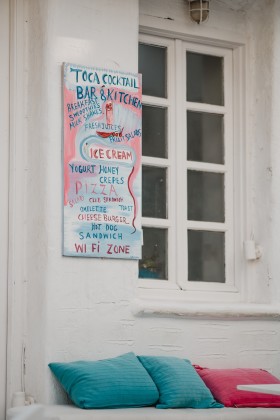 TOCA COCKTAIL
BAR & KITCHEN
BREAKFAST
SMOOTHIES
MILK SHAKES
FRESH JUICES
FRUIT SALADS
ICE CREAM
YOGURT HONEY
CREPES
PIZZA
CLUB SANDWICH
OMELETTE TOAST
CHEESE BURGER
HOT DOG
SANDWICH
WI FI ZONE